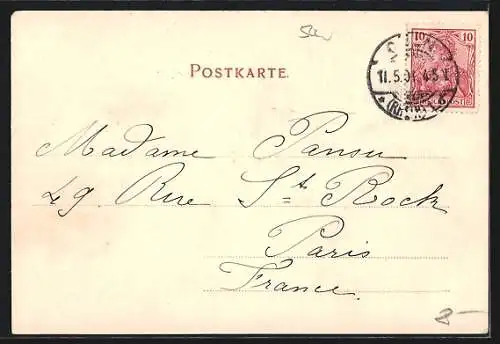 POSTKARTE.
10 10
11.5.01. 4-5 N
Madame Pansu
49. Rue St Rock
Paris
France.